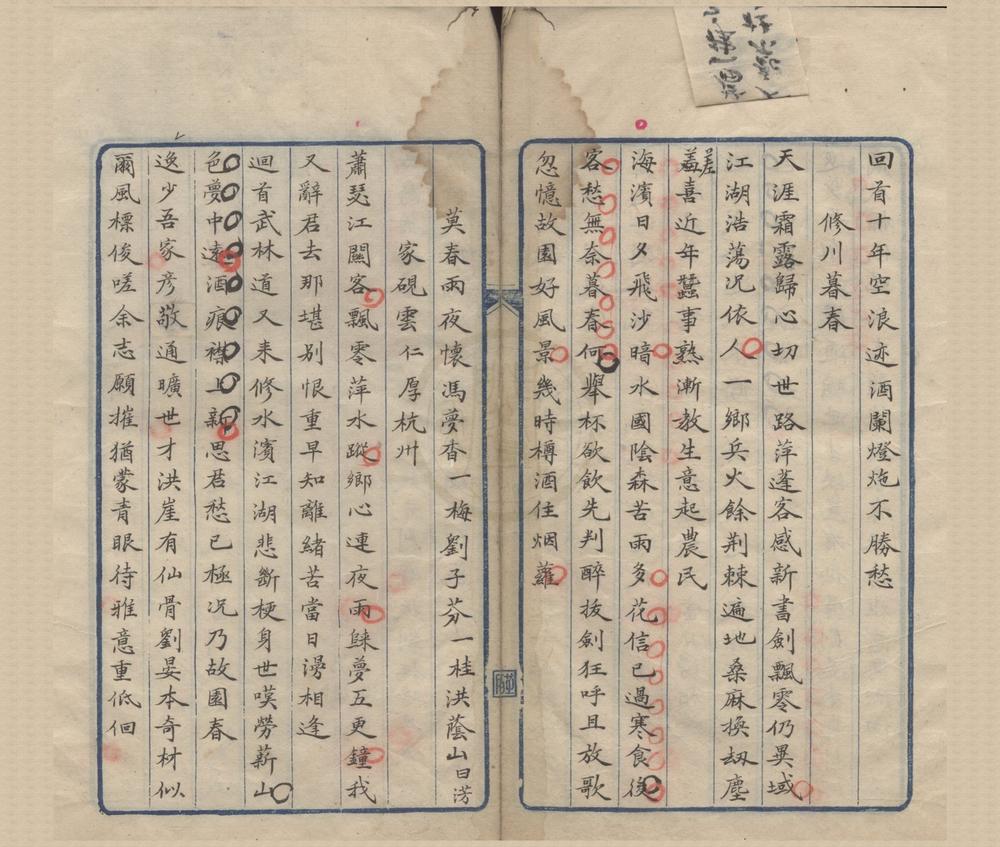 回首十年空浪迹酒闌燈炧不勝愁
修川暮春
天涯霜露歸心切世路萍蓬客感新書劍飄零仍異域
江湖浩蕩况依人一鄉兵火餘荆棘遍地桑麻換刼塵
羞喜近年蠶事熟漸教生意起農民
差
海濱日夕飛沙暗水國陰森苦雨多花信已過寒食後
客愁無奈暮春何舉杯欲飲先判醉拔劍狂呼且放歌
忽憶故園好風景幾時樽酒住烟蘿
莫春雨夜懷馮夢香一梅劉子芬一桂洪蔭山曰滂
家硯雲仁厚杭州
蕭瑟江關客飄零萍水蹤鄉心連夜雨歸夢五更鐘我
又辭君去那堪別恨重早知離緒苦當日漫相逢
迴首武林道又来修水濱江湖悲斷梗身世嘆勞薪山
色夢中遠酒痕襟上新思君愁已極况乃故園春
逸少吾家彦敬通曠世才洪崖有仙骨劉晏本奇材似
爾風標俊嗟余志願摧猶蒙青眼待雅意重低佪